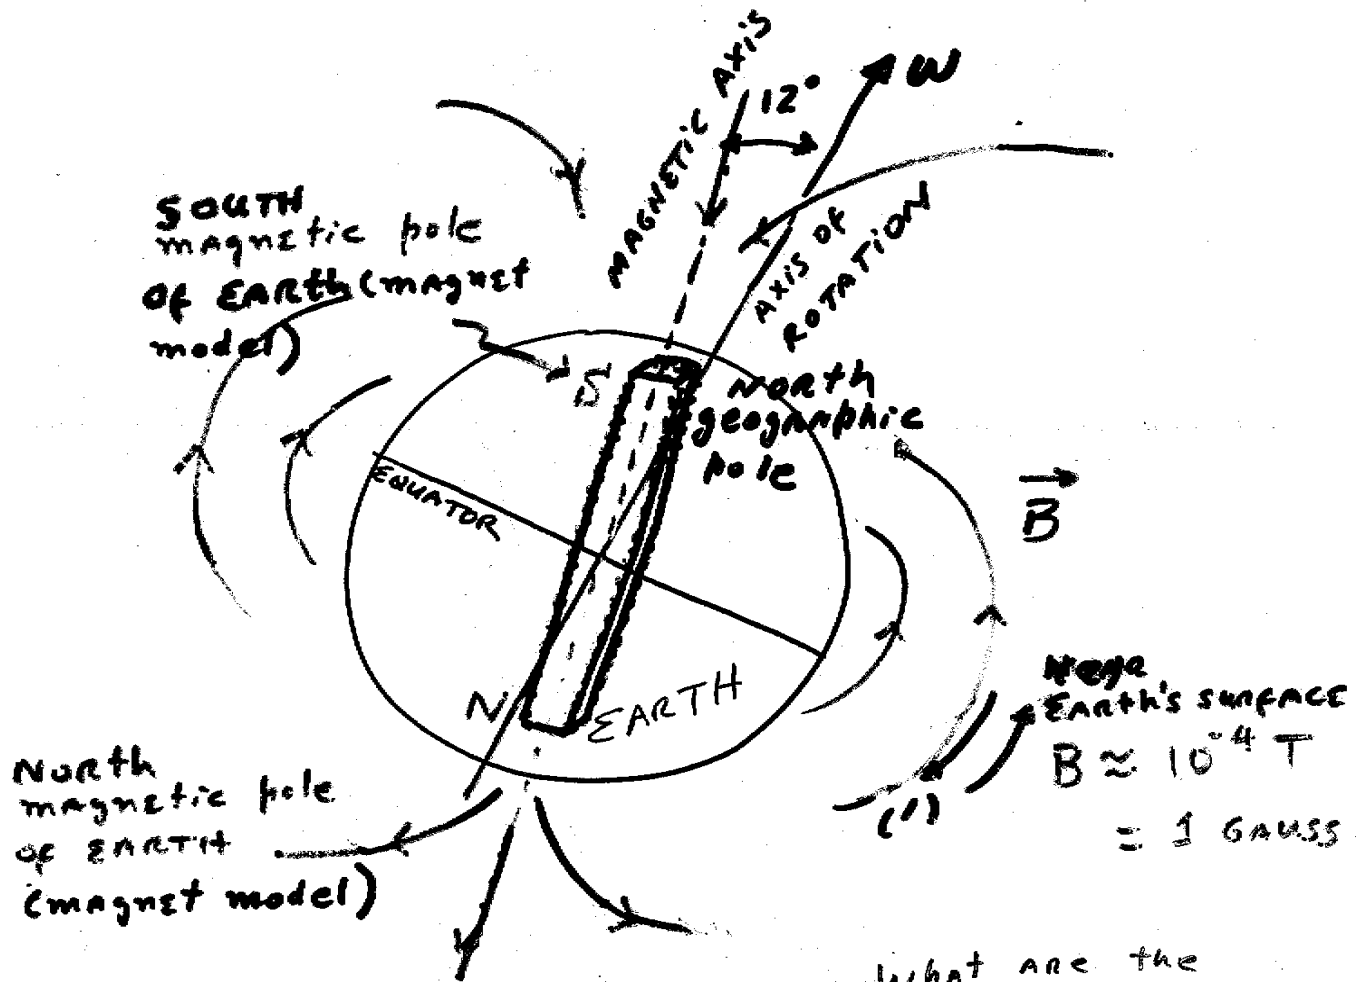 MAGNETIC AXIS
12°
ω
SOUTH
magnetic pole
of EARTH (magnet
model)
AXIS OF
ROTATION
S
NORTH
geographic
pole
EQUATOR
B
N
EARTH
EARTH'S SURFACE
B ≈ 10^-4 T
= 1 GAUSS
(1)
NORTH
magnetic pole
of EARTH
(magnet model)
What are the